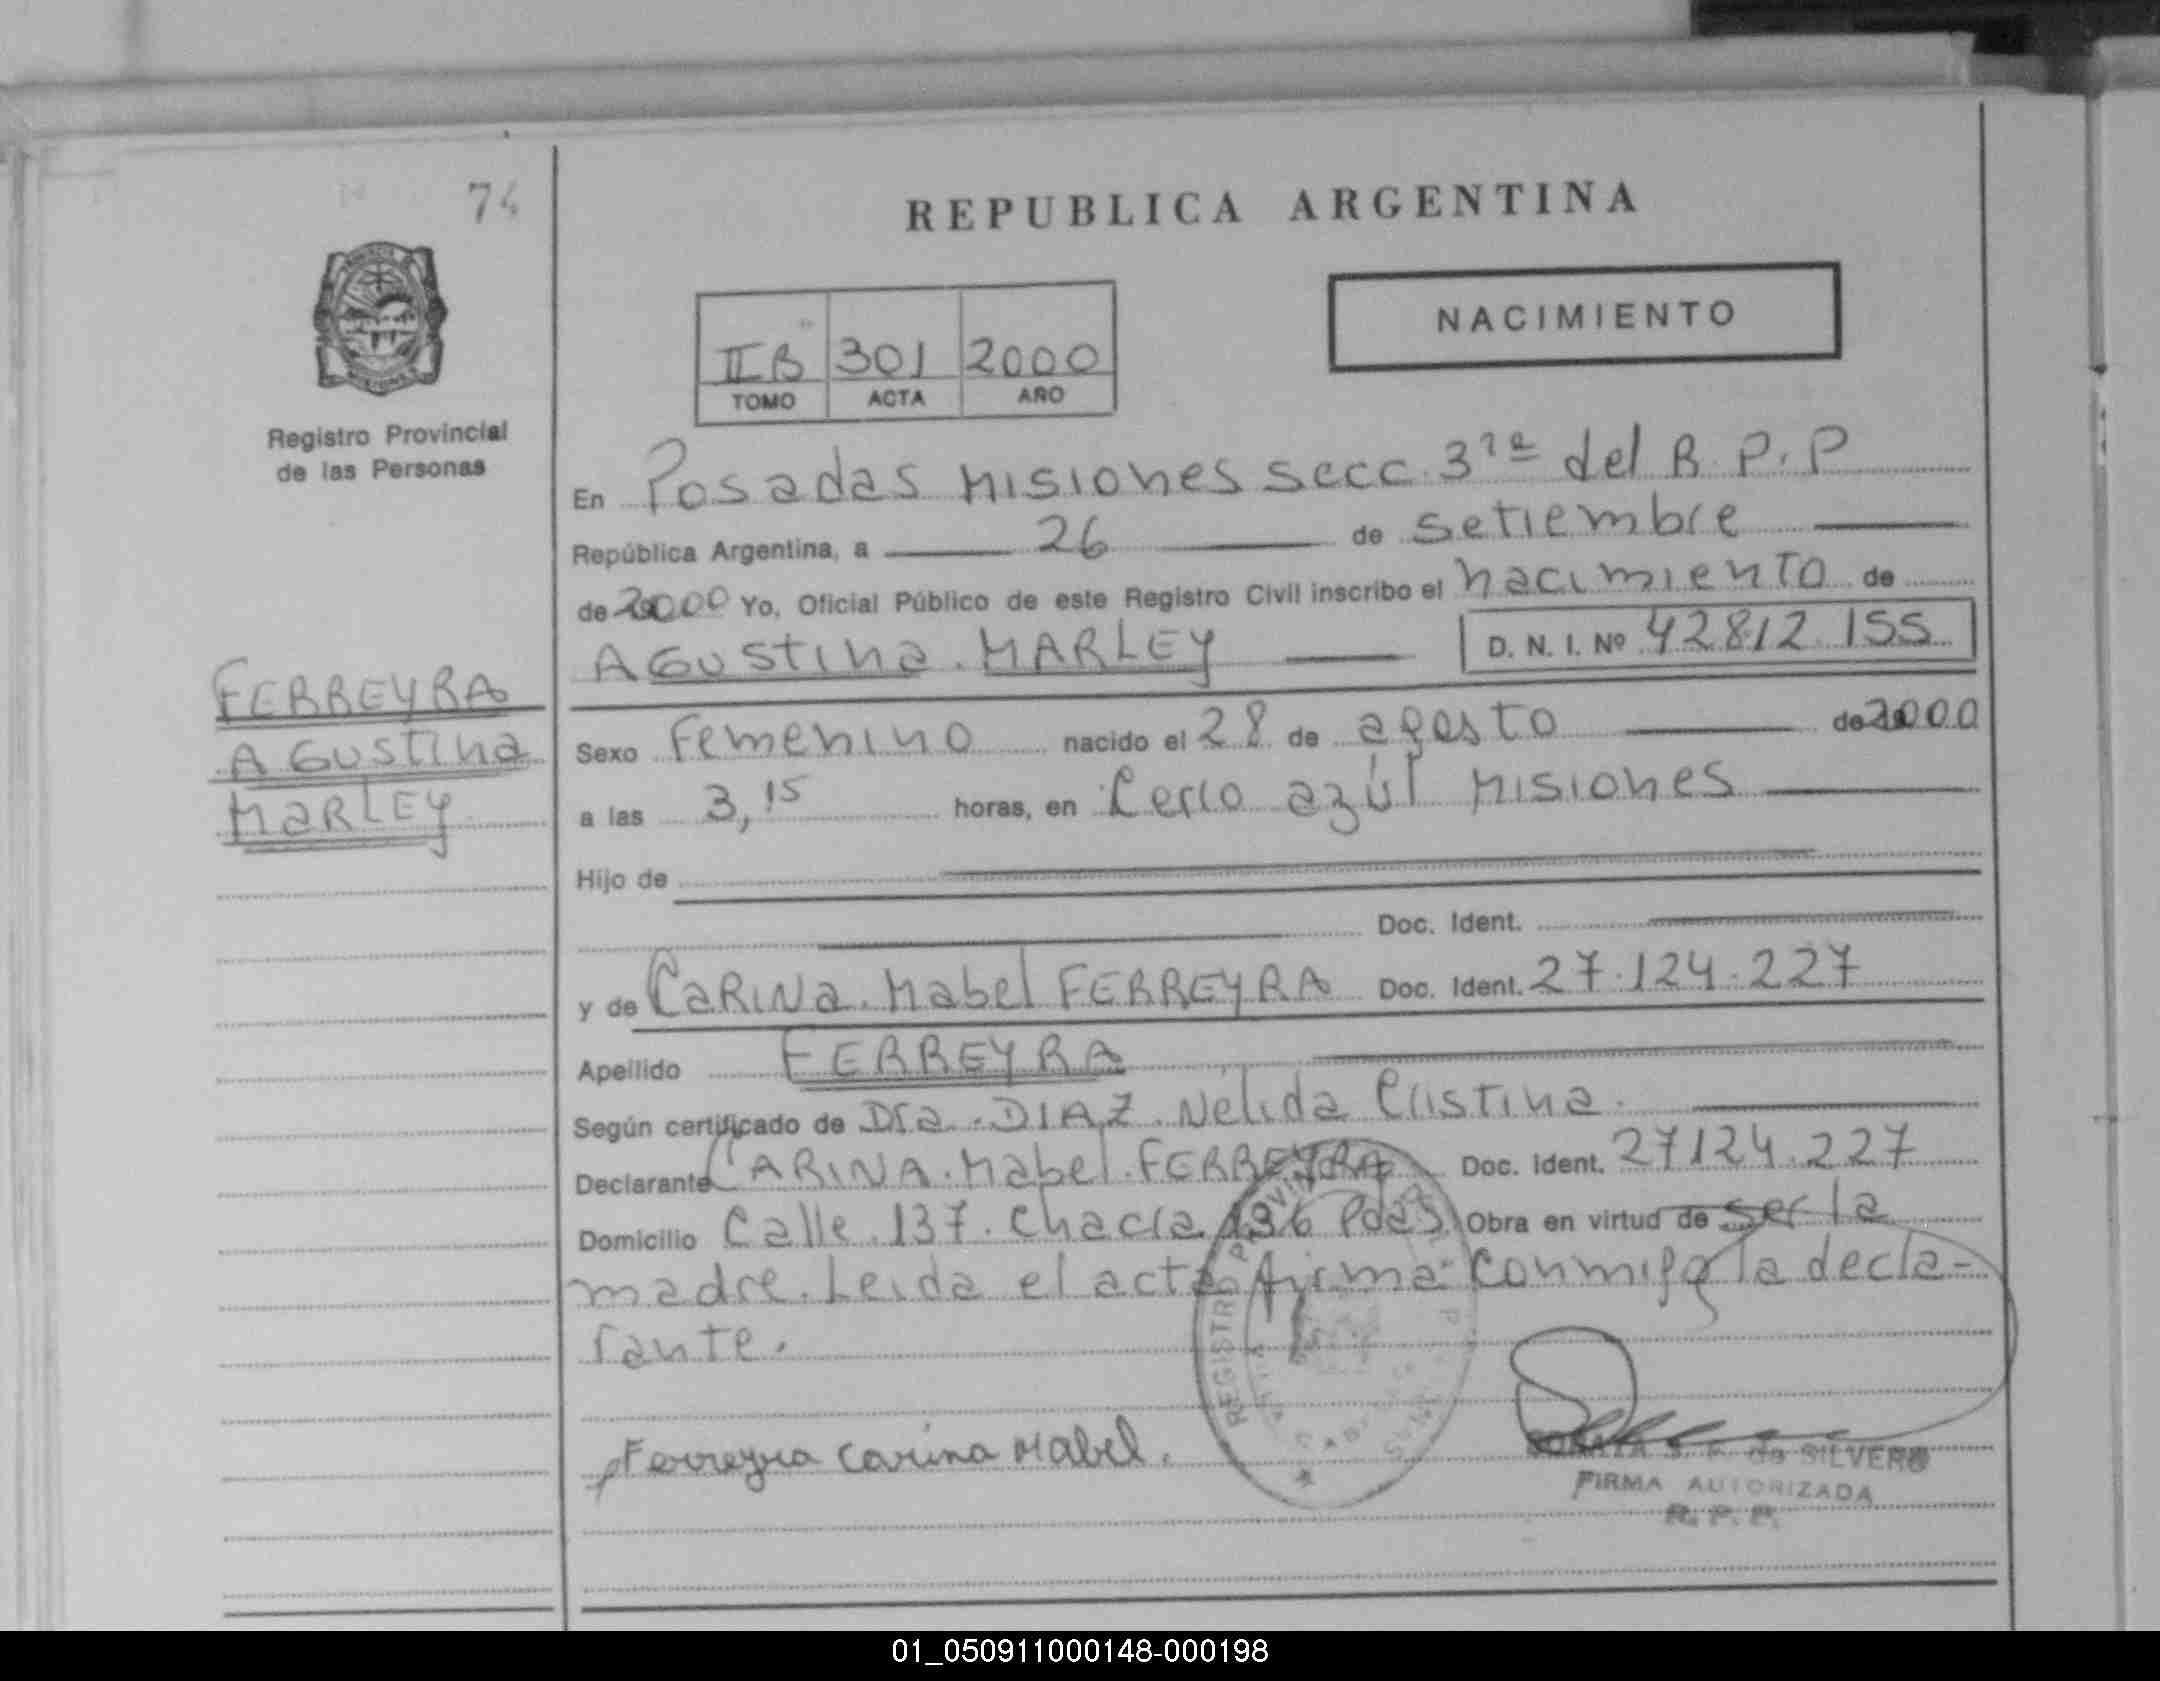 74
REPUBLICA ARGENTINA
NACIMIENTO
II B 301 2000
TOMO ACTA AÑO
Registro Provincial
de las Personas
En Posadas Misiones secc. 3ra del R.P.P
República Argentina, a 26 de setiembre
de 2000 Yo, Oficial Público de este Registro Civil inscribo el nacimiento de
AGustina MARLEY D. N. I. Nº 42812.155
FERREYRA
AGustina
MaRLEY
Sexo Femenino nacido el 28 de agosto de 2000
a las 3,15 horas, en Cerro azúl Misiones
Hijo de
Doc. Ident.
y de CaRiNa Mabel FERREYRA Doc. Ident. 27.124.227
Apellido FERREYRA
Según certificado de Dra. DIAZ Nelida Cristina.
Declarante CARINA Mabel FERREYRA Doc. Ident. 27124.227
Domicilio Calle 137 chacra 136 Pdas Obra en virtud de ser la
madre. Leida el acta firma conmigo la decla-
rante.
Ferreyra Carina Mabel.
de SILVERO
FIRMA AUTORIZADA
R. P. P.
01_050911000148-000198